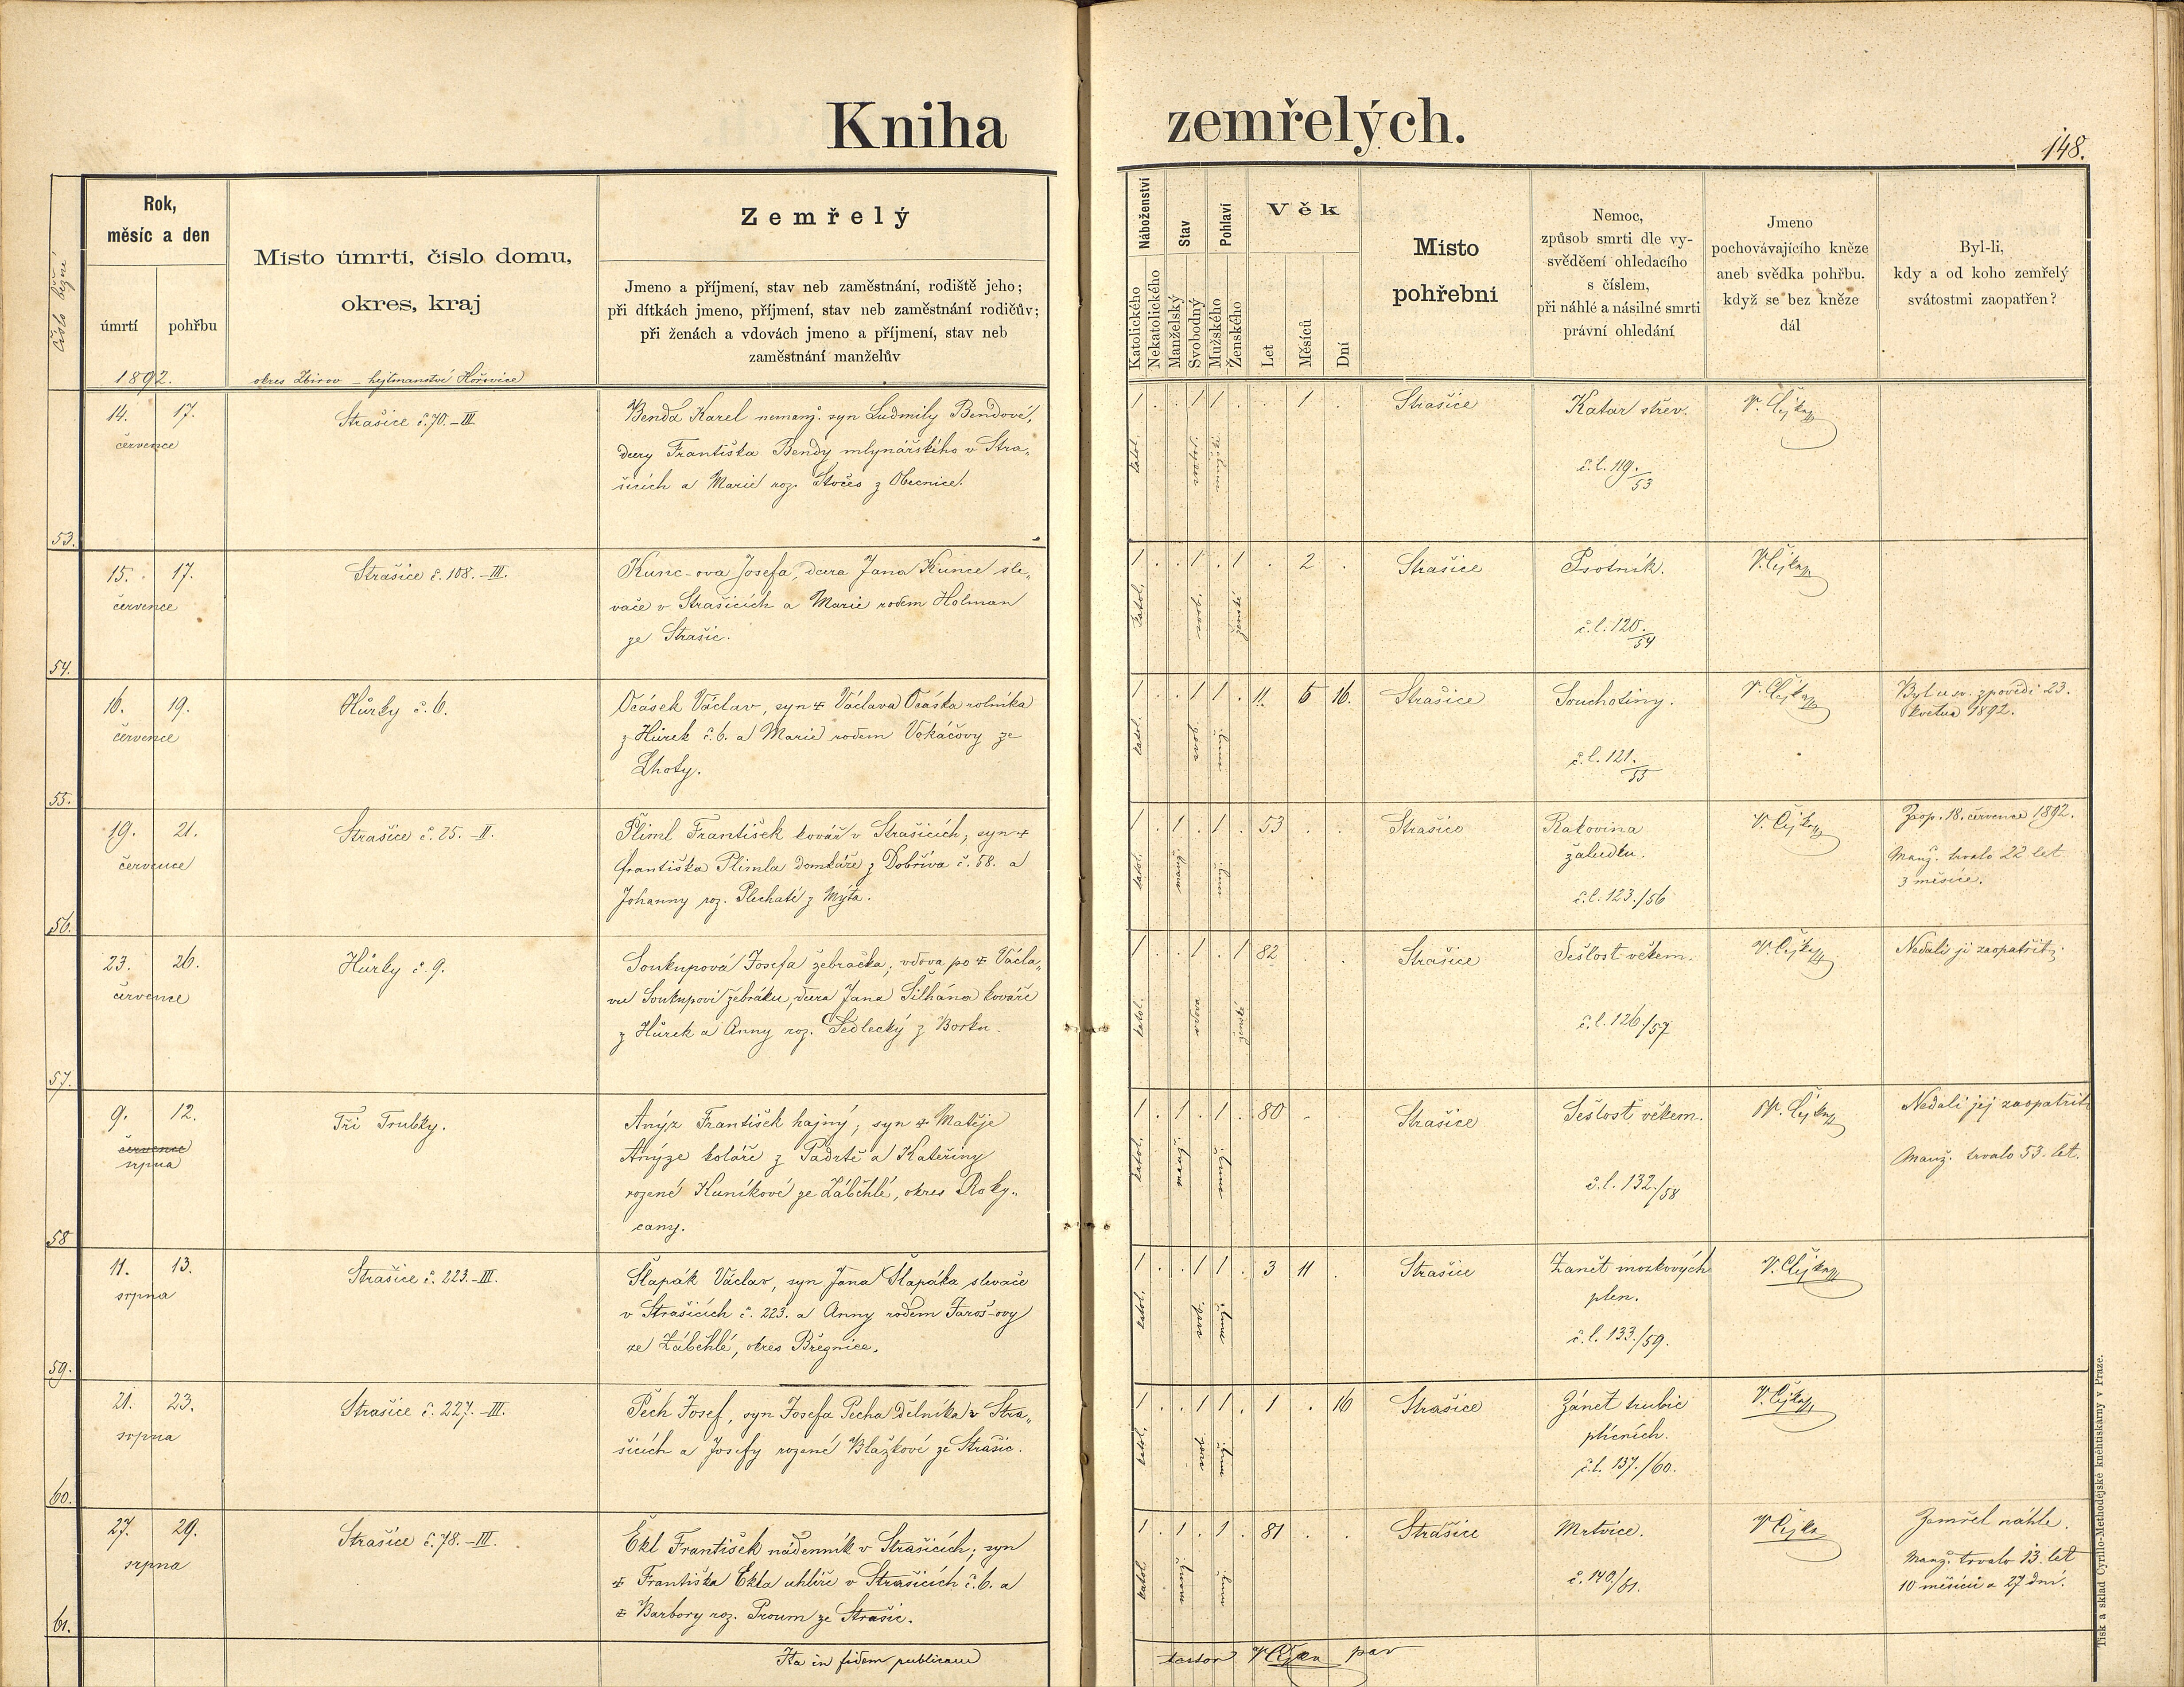 Kniha zemřelých.
148.
Číslo běžné
Rok,
měsíc a den
úmrtí
pohřbu
1892.
Místo úmrtí, číslo domu,
okres, kraj
okres Zbirov – hejtmanství Hořovice
Zemřelý
Jmeno a příjmení, stav neb zaměstnání, rodiště jeho;
při dítkách jmeno, příjmení, stav neb zaměstnání rodičův;
při ženách a vdovách jmeno a příjmení, stav neb
zaměstnání manželův
Náboženství
Katolického
Nekatolického
Stav
Manželský
Svobodný
Pohlaví
Mužského
Ženského
Věk
Let
Měsíců
Dní
Místo
pohřební
Nemoc,
způsob smrti dle vy-
svědčení ohledacího
s číslem,
při náhlé a násilné smrti
právní ohledání
Jmeno
pochovávajícího kněze
aneb svědka pohřbu.
když se bez kněze
dál
Byl-li,
kdy a od koho zemřelý
svátostmi zaopatřen?
53.
14. 17.
července
Strašice č. 70. – III.
Benda Karel nemanž. syn Ludmily Bendové,
dcery Františka Bendy mlynářského v Stra-
šicích a Marie roz. Stočes z Obecnice.
1 . . 1 1 . . 1 .
katol.
Strašice
Katar střev.
č. l. 119./53
V. Čejka
54.
15. 17.
července
Strašice č. 108. – III.
Kunc-ova Josefa, dcera Jana Kunce sle-
vače v Strašicích a Marie rodem Holman
ze Strašic.
1 . . 1 . 1 . 2 .
katol.
Strašice
Psotník.
č. l. 120./54
V. Čejka
55.
16. 19.
července
Hůrky č. 6.
Ocásek Václav, syn + Václava Ocáska rolníka
z Hůrek č. 6. a Marie rodem Vokáčovy ze
Lhoty.
1 . . 1 1 . 11. 6 16.
katol.
Strašice
Souchotiny.
č. l. 121./55
V. Čejka
Byl u sv. zpovědi 23.
května 1892.
56.
19. 21.
července
Strašice č. 25. – II.
Pliml František kovář v Strašicích, syn +
Františka Plimla domkáře z Dobříva č. 58. a
Johanny roz. Plechaté z Mýta.
1 . 1 . 1 . 53 . .
katol.
Strašice
Rakovina
žaludku.
č. l. 123./56
V. Čejka
Zaop. 18. července 1892.
Manž. trvalo 22 let
3 měsíce.
57.
23. 26.
července
Hůrky č. 9.
Soukupová Josefa žebračka, vdova po + Václa-
vu Soukupovi žebráku, dcera Jana Šilhána kováře
z Hůrek a Anny roz. Sedlecký z Borku.
1 . . 1 . 1 82 . .
katol.
Strašice
Sešlost věkem.
č. l. 126/57
V. Čejka
Nedali ji zaopatřit.
58
9. 12.
července
srpna
Tři Trubky.
Anýz František hajný, syn + Matěje
Anýze koláře z Padrtě a Kateřiny
rozené Kuníkové ze Záběhlé, okres Roky-
cany.
1 . 1 . 1 . 80 .
katol.
Strašice
Sešlost věkem.
č. l. 132./58
V. Čejka
Nedali jej zaopatřit
Manž. trvalo 53 let.
59.
11. 13.
srpna
Strašice č. 223. – III.
Šlapák Václav, syn Jana Šlapáka slevače
v Strašicích č. 223. a Anny rodem Jaroš-ovy
ze Záběhlé, okres Březnice.
1 . . 1 1 . 3 11 .
katol.
Strašice
Zanět mozkových
plen.
č. l. 133./59.
V. Čejka
60.
21. 23.
srpna
Strašice č. 227. – III.
Pech Josef, syn Josefa Pecha dělníka v Stra-
šicích a Josefy rozené Blažkové ze Strašic.
1 . . 1 1 . 1 . 16
katol.
Strašice
Zánět trubic
plicních.
č. l. 137./60.
V. Čejka
61.
27. 29.
srpna
Strašice č. 78. – III.
Ekl František nádenník v Strašicích; syn
+ Františka Ekla uhlíře v Strašicích č. 6. a
+ Barbory roz. Proum ze Strašic.
1 . 1 . 1 . 81 . .
katol
Strašice
Mrtvice.
č. 140/61.
V. Čejka
Zemřel náhle.
Manž. trvalo 13. let
10 měsíců a 27 dní.
Ita in fidem publicam
testor V. Čejka par
Tisk a sklad Cyrillo-Methodějské knihtiskárny v Praze.